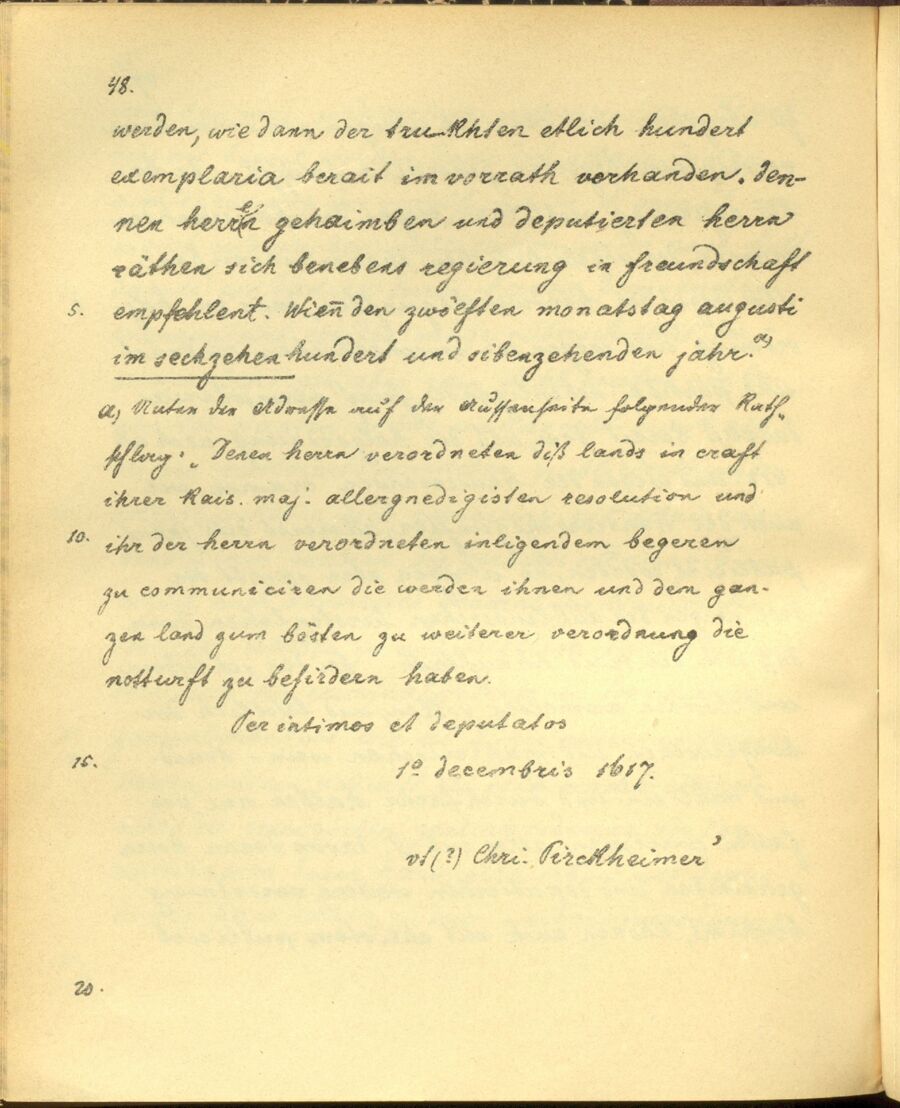 48.
werden, wie dann der trukhten etlich hundert
exemplaria berait im vorrath verhanden. Den-
nen herrn gehaimben und deputierten herrn
räthen sich benebens regierung in freundschaft
5. empfehlent. Wienn den zwölften monatstag augusti
im sechzehenhundert und sibenzehenden jahr. a)
a) Unter der Adresse auf der Aussenseite folgender Rath-
schlag: „Denen herrn verordneten diß lands in craft
ihrer kais. maj. allergnedigisten resolution und
10. ihr der herrn verordneten inligendem begeren
zu communiciren die werden ihnen und dem gan-
zen land zum bösten zu weiterer verordnung die
notturft zu befirdern haben.
Per intimos et deputatos
15. 1º decembris 1617.
vt (?) Chri. Pirckheimer"
20.